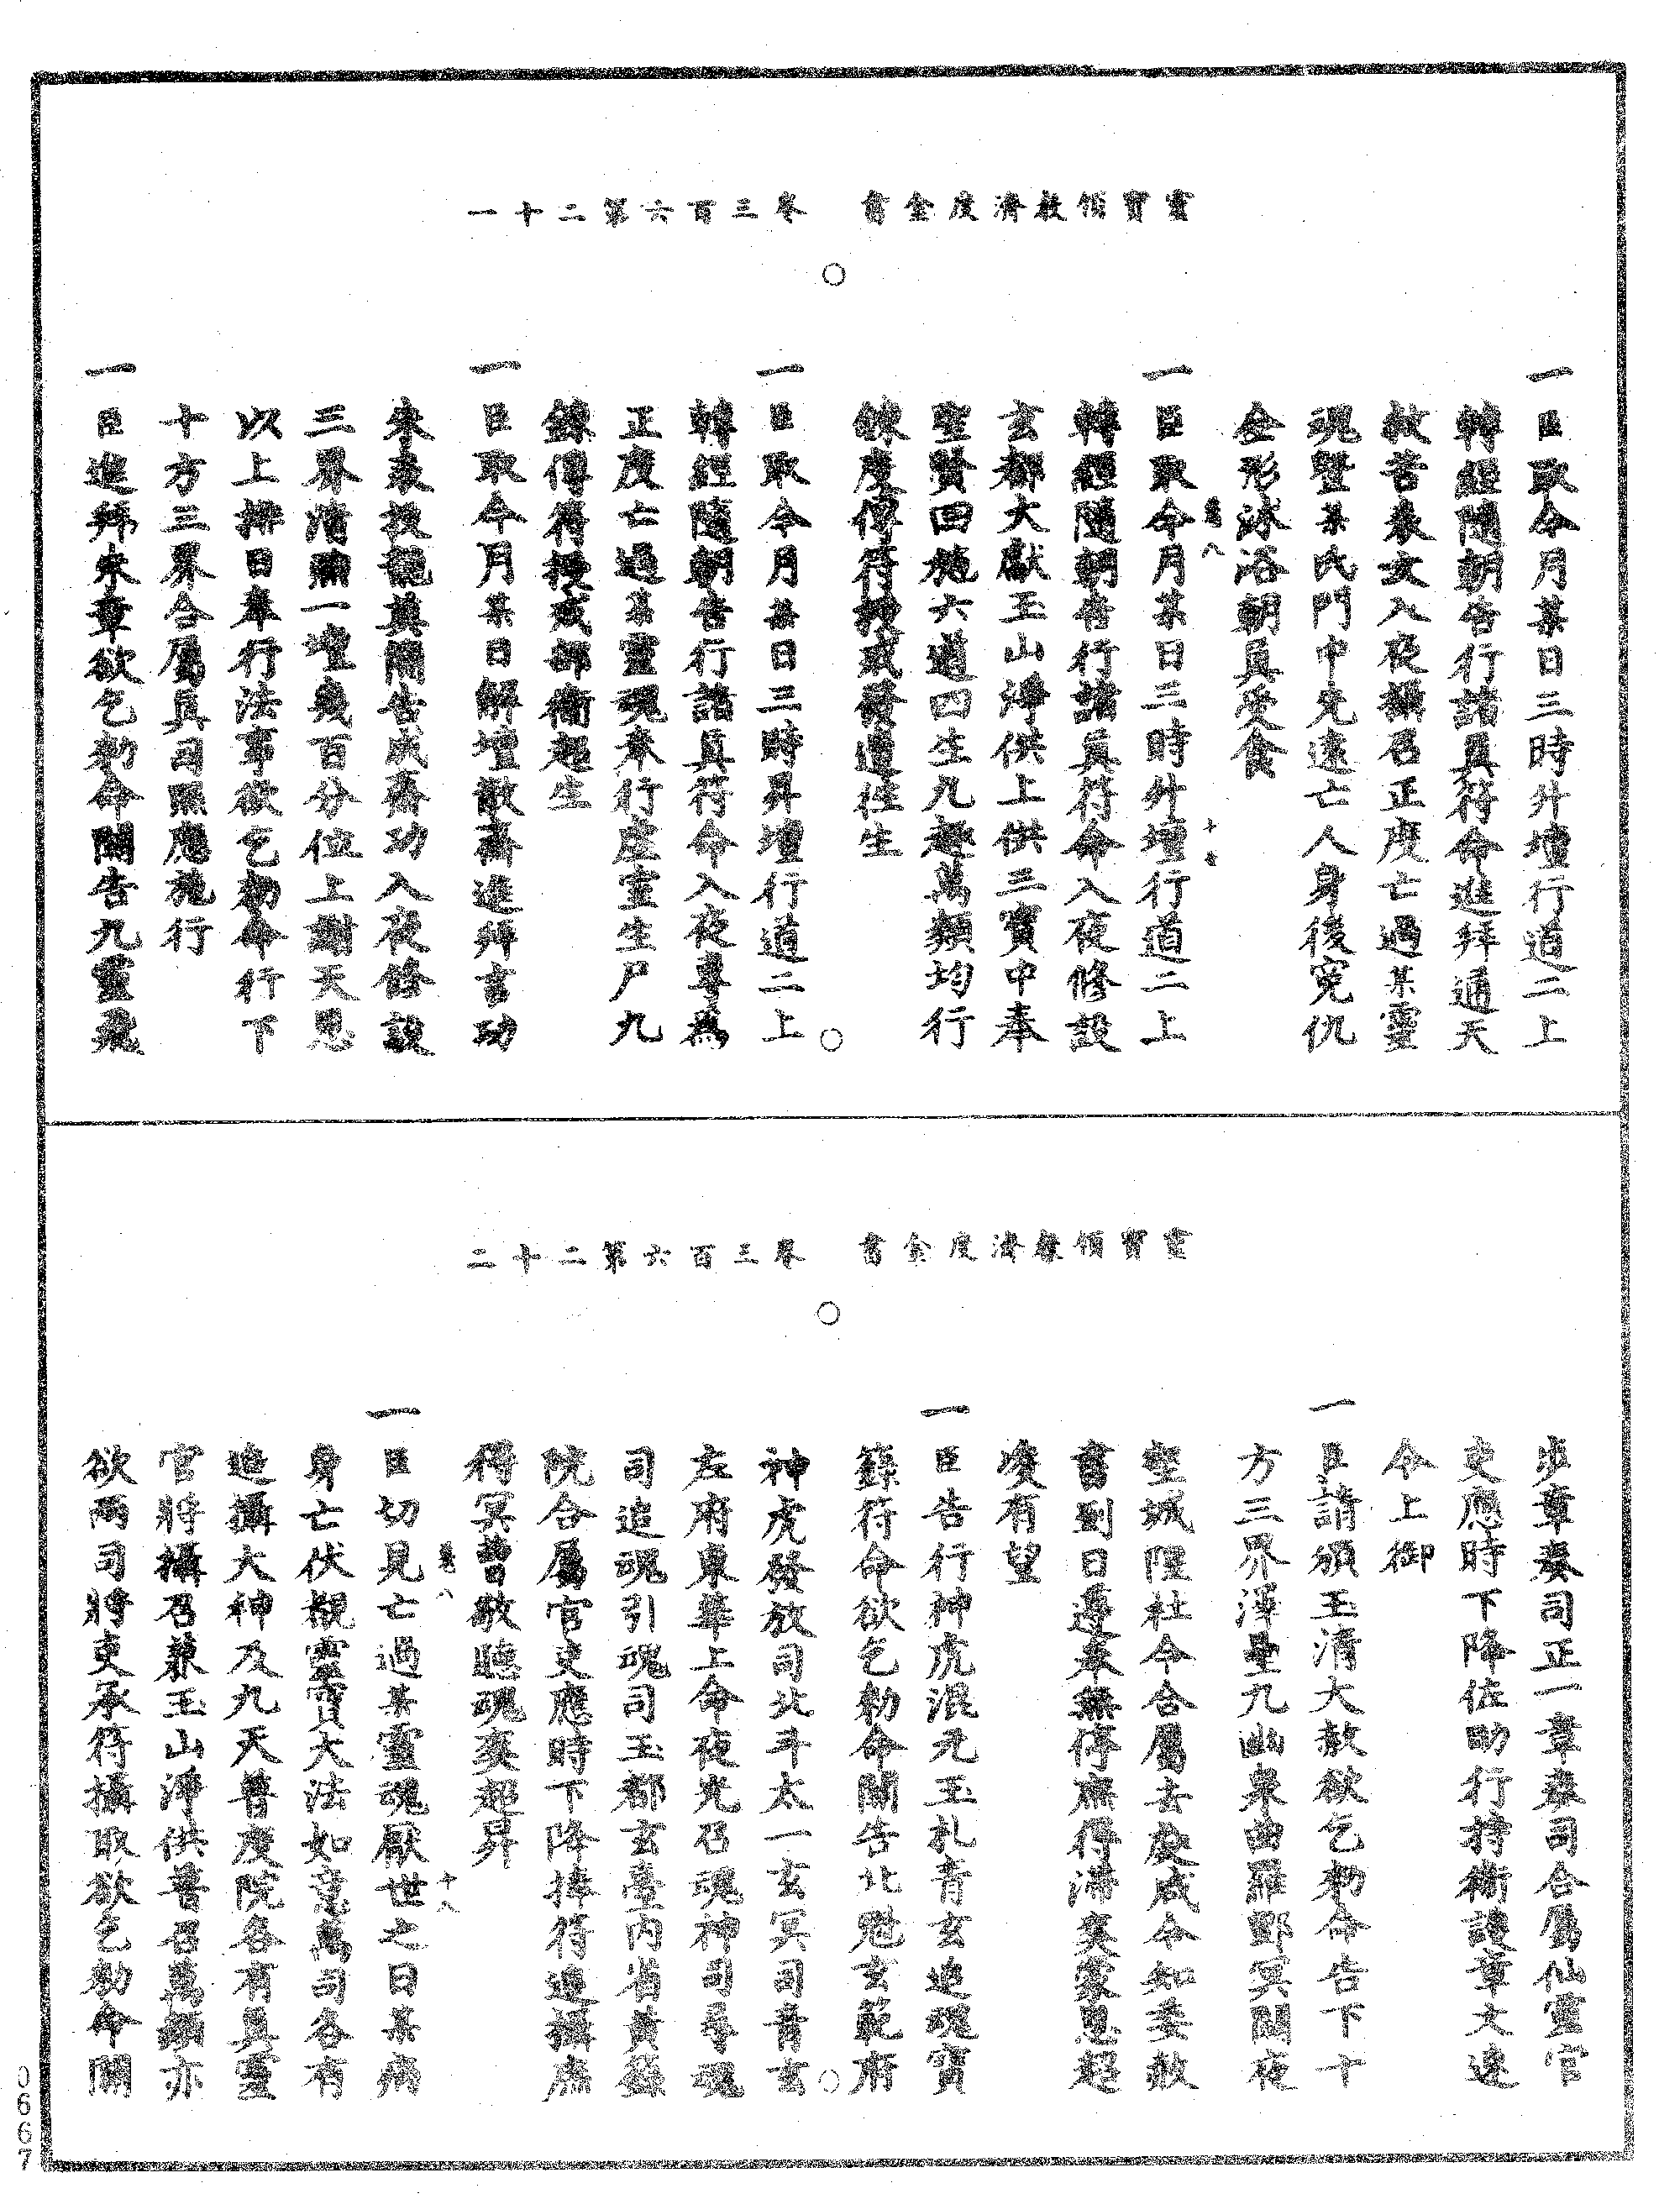 靈寶領教濟度金書　卷三百六　第二十一
一臣取今月某日三時升壇行道二上
轉經隨朝告行諸真符命進拜通天
救苦朱文入夜攝召正度亡過某靈
魂曁某氏門中先遠亡人身後冤仇
全形沐浴朝真受食
一臣取今月某日三時升壇行道二上
轉經隨朝告行諸真符命入夜修設
玄都大獻玉山淨供上供三寶中奉
聖賢回施六道四生九趣萬類均行
鍊度傳符授戒發遣往生
一臣取今月某日三時昇壇行道二上
轉經隨朝告行諸真符命入夜專為
正度亡過某靈魂奉行虛室生尸九
鍊傳符授戒部衞超生
一臣取今月某日解壇散齋進拜言功
朱表投龍奠簡告成齋功入夜修設
三界清醮一壇幾百分位上謝天恩
以上排日奉行法事欲乞勑命行下
十方三界合屬真司照應施行
一臣進拜朱章欲乞勑命關告九靈飛
靈寶領教濟度金書　卷三百六　第二十二
步章奏司正一章奏司合屬仙靈官
吏應時下降佐助行持衞護章文速
令上御
一臣請頒玉清大赦欲乞勑命告下十
方三界渾里九幽泉曲羅酆冥關夜
壑城隍社令合屬去處咸令知委赦
書到日遵奉無停無得滯寞蒙恩超
度有望
一臣告行神虎混元玉札青玄追魂寶
籙符命欲乞勑命關告北魁玄範府
神虎發放司北斗太一玄冥司青玄
左府東華上命夜光召魂神司尋魂
司追魂引魂司玉都玄臺內省黃籙
院合屬官吏應時下降捧符追攝庶
得冥曹敬聽魂爽超昇
一臣切見亡過某靈魂厭世之日某病
身亡伏覩靈寶大法如意萬司各有
追攝大神及九天普度院各有真靈
官將攝召兼玉山淨供普召萬類亦
欲兩司將吏承符攝取欲乞勑命關
0667